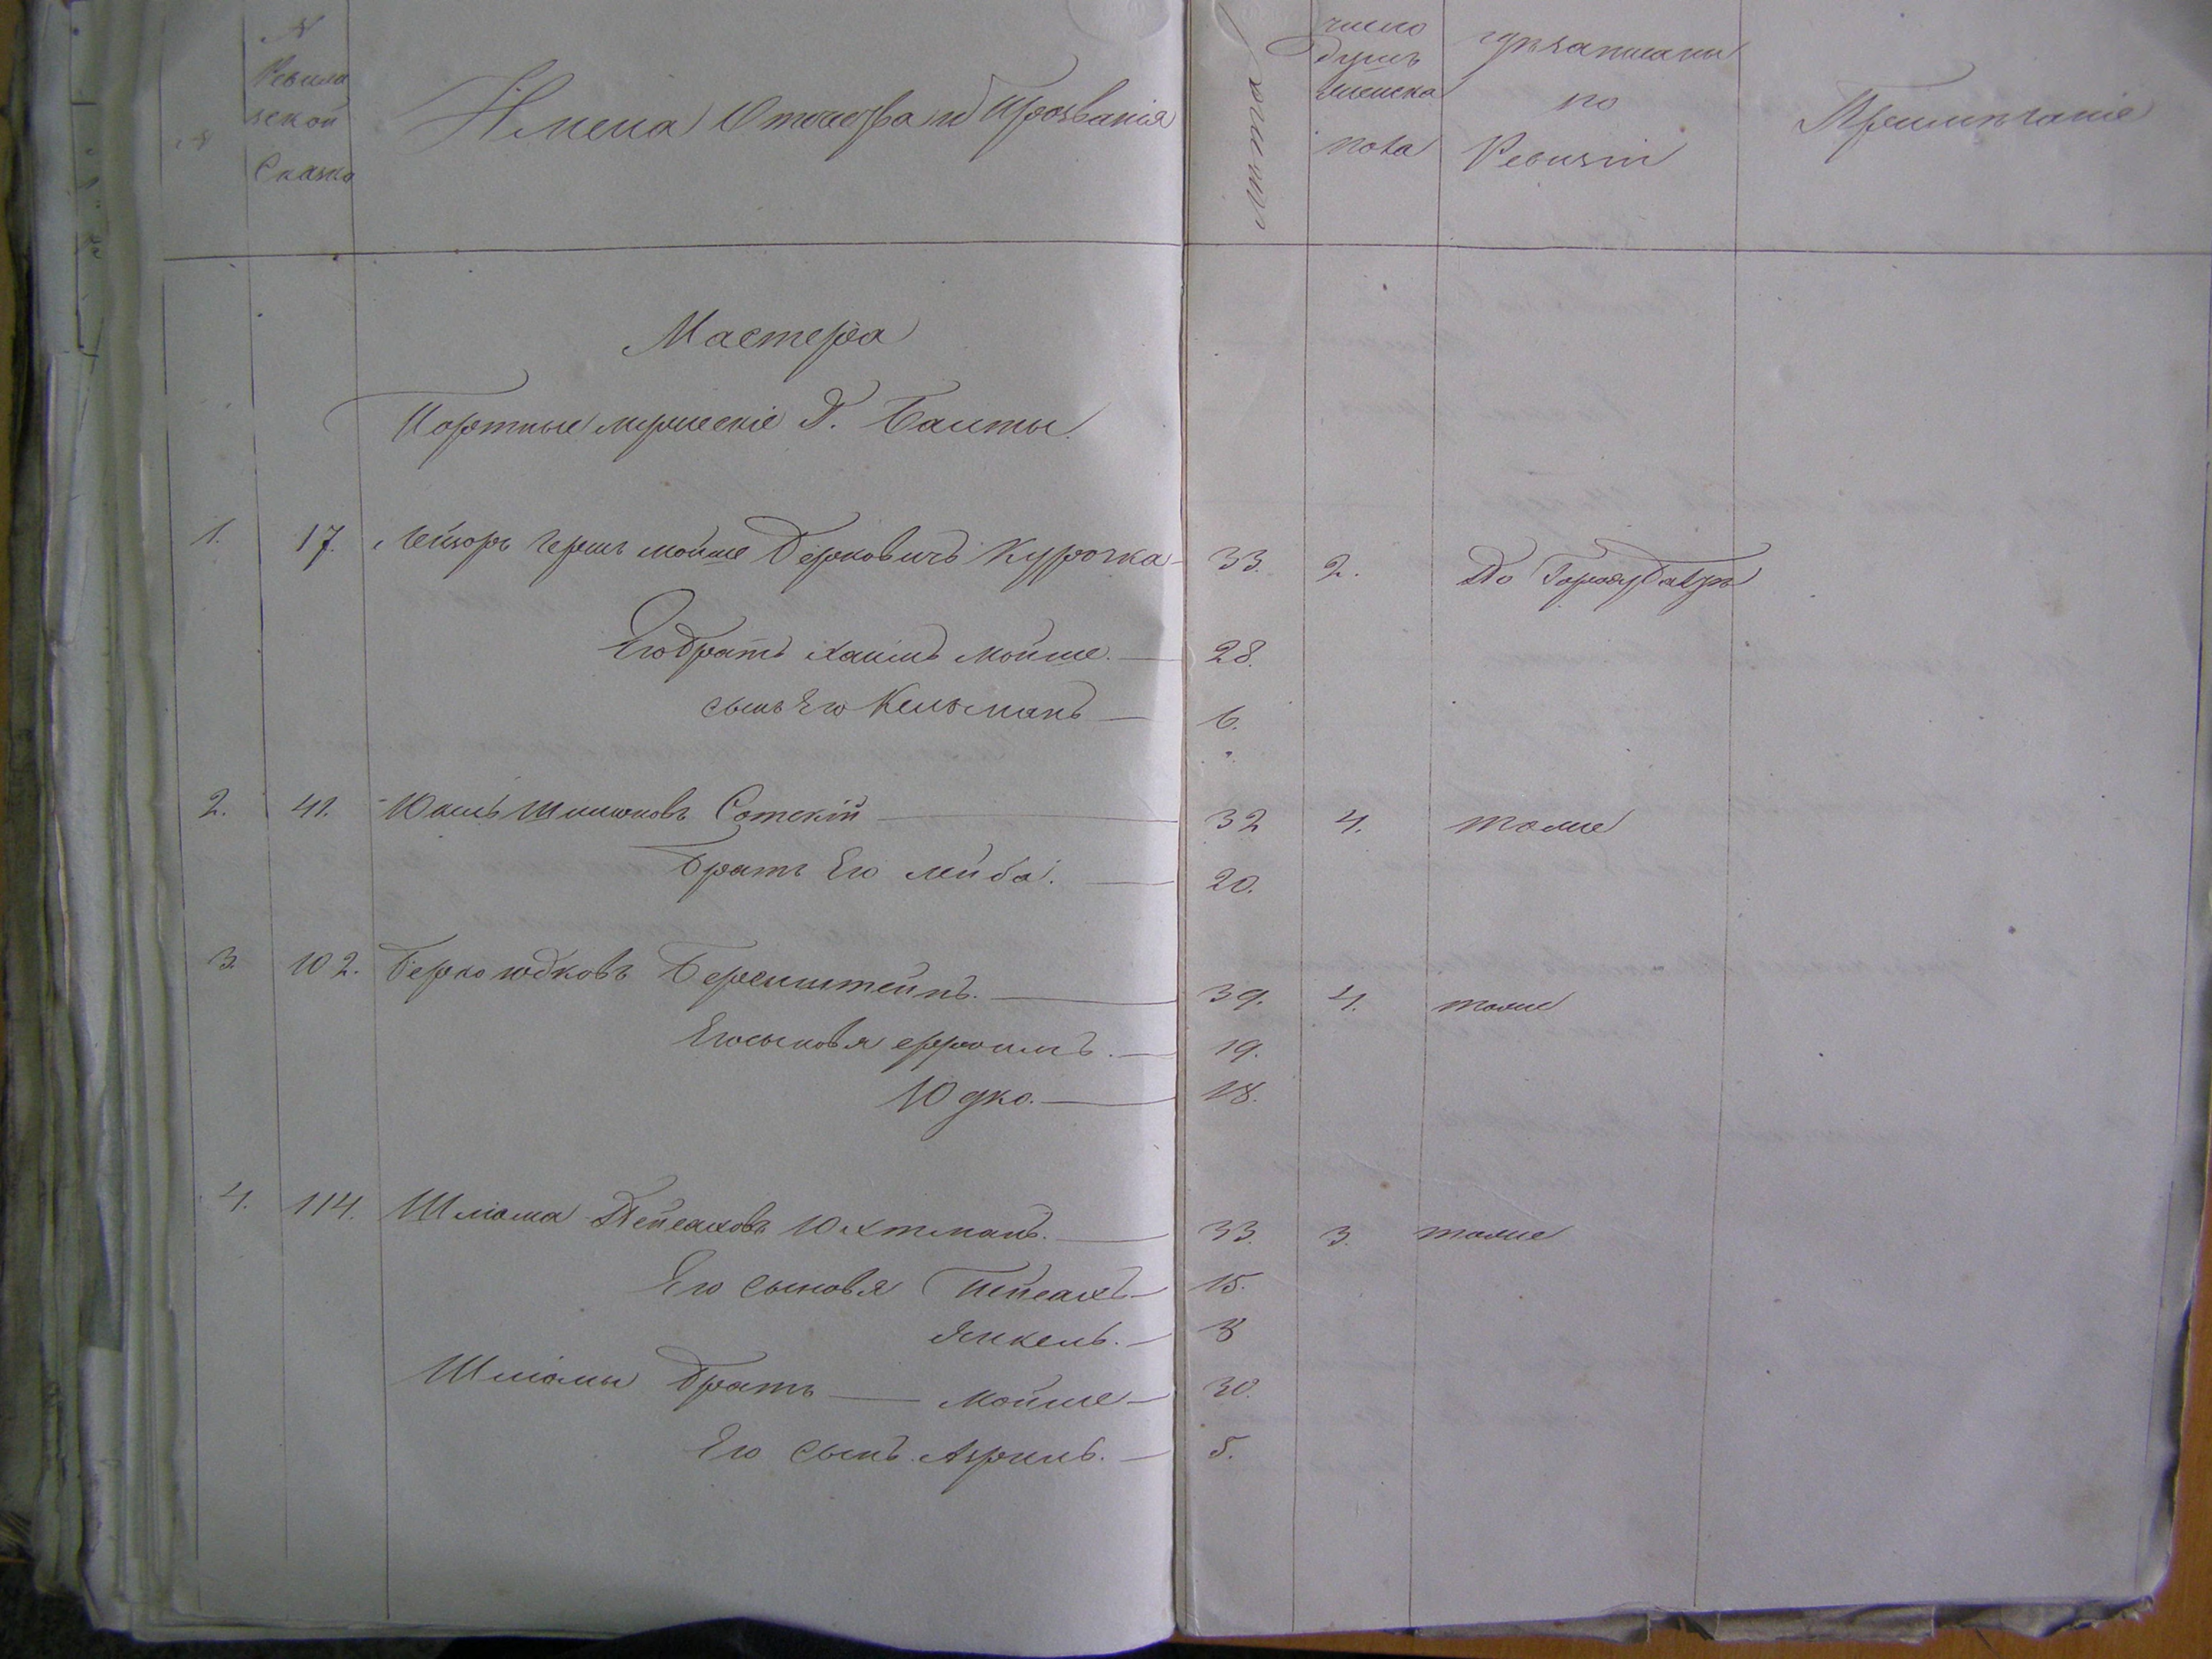 №
№ Ревизской Сказки
Имена Отчества и Прозвания
Лѣта
число душъ мужеска пола
гдѣ записаны по Ревизіи
Примѣчаніе
Мастера
Портные мужескіе Г. Балты
1. 17. Лейзоръ Гершъ Мошье Берковичъ Курочка 33. 2. По Городу Балтѣ
Его братъ Хаимъ Мойше. 28.
сынъ Его Кельманъ 6.
2. 41. Юкель Шлиомовъ Сотскій 32 4. тоже
Братъ Его Лейба. 20.
3 102. Берко Юдковъ Беренштейнъ. 39. 4. тоже
Его сыновья Ефроимъ. 19.
Юдко. 18.
4. 114. Шліома Пейсаховъ Юхтманъ. 33. 3. тоже
Его сыновья Пейсахъ 15.
Янкель. 8
Шліомы братъ Мойше 30.
Его сынъ Азриль. 5.